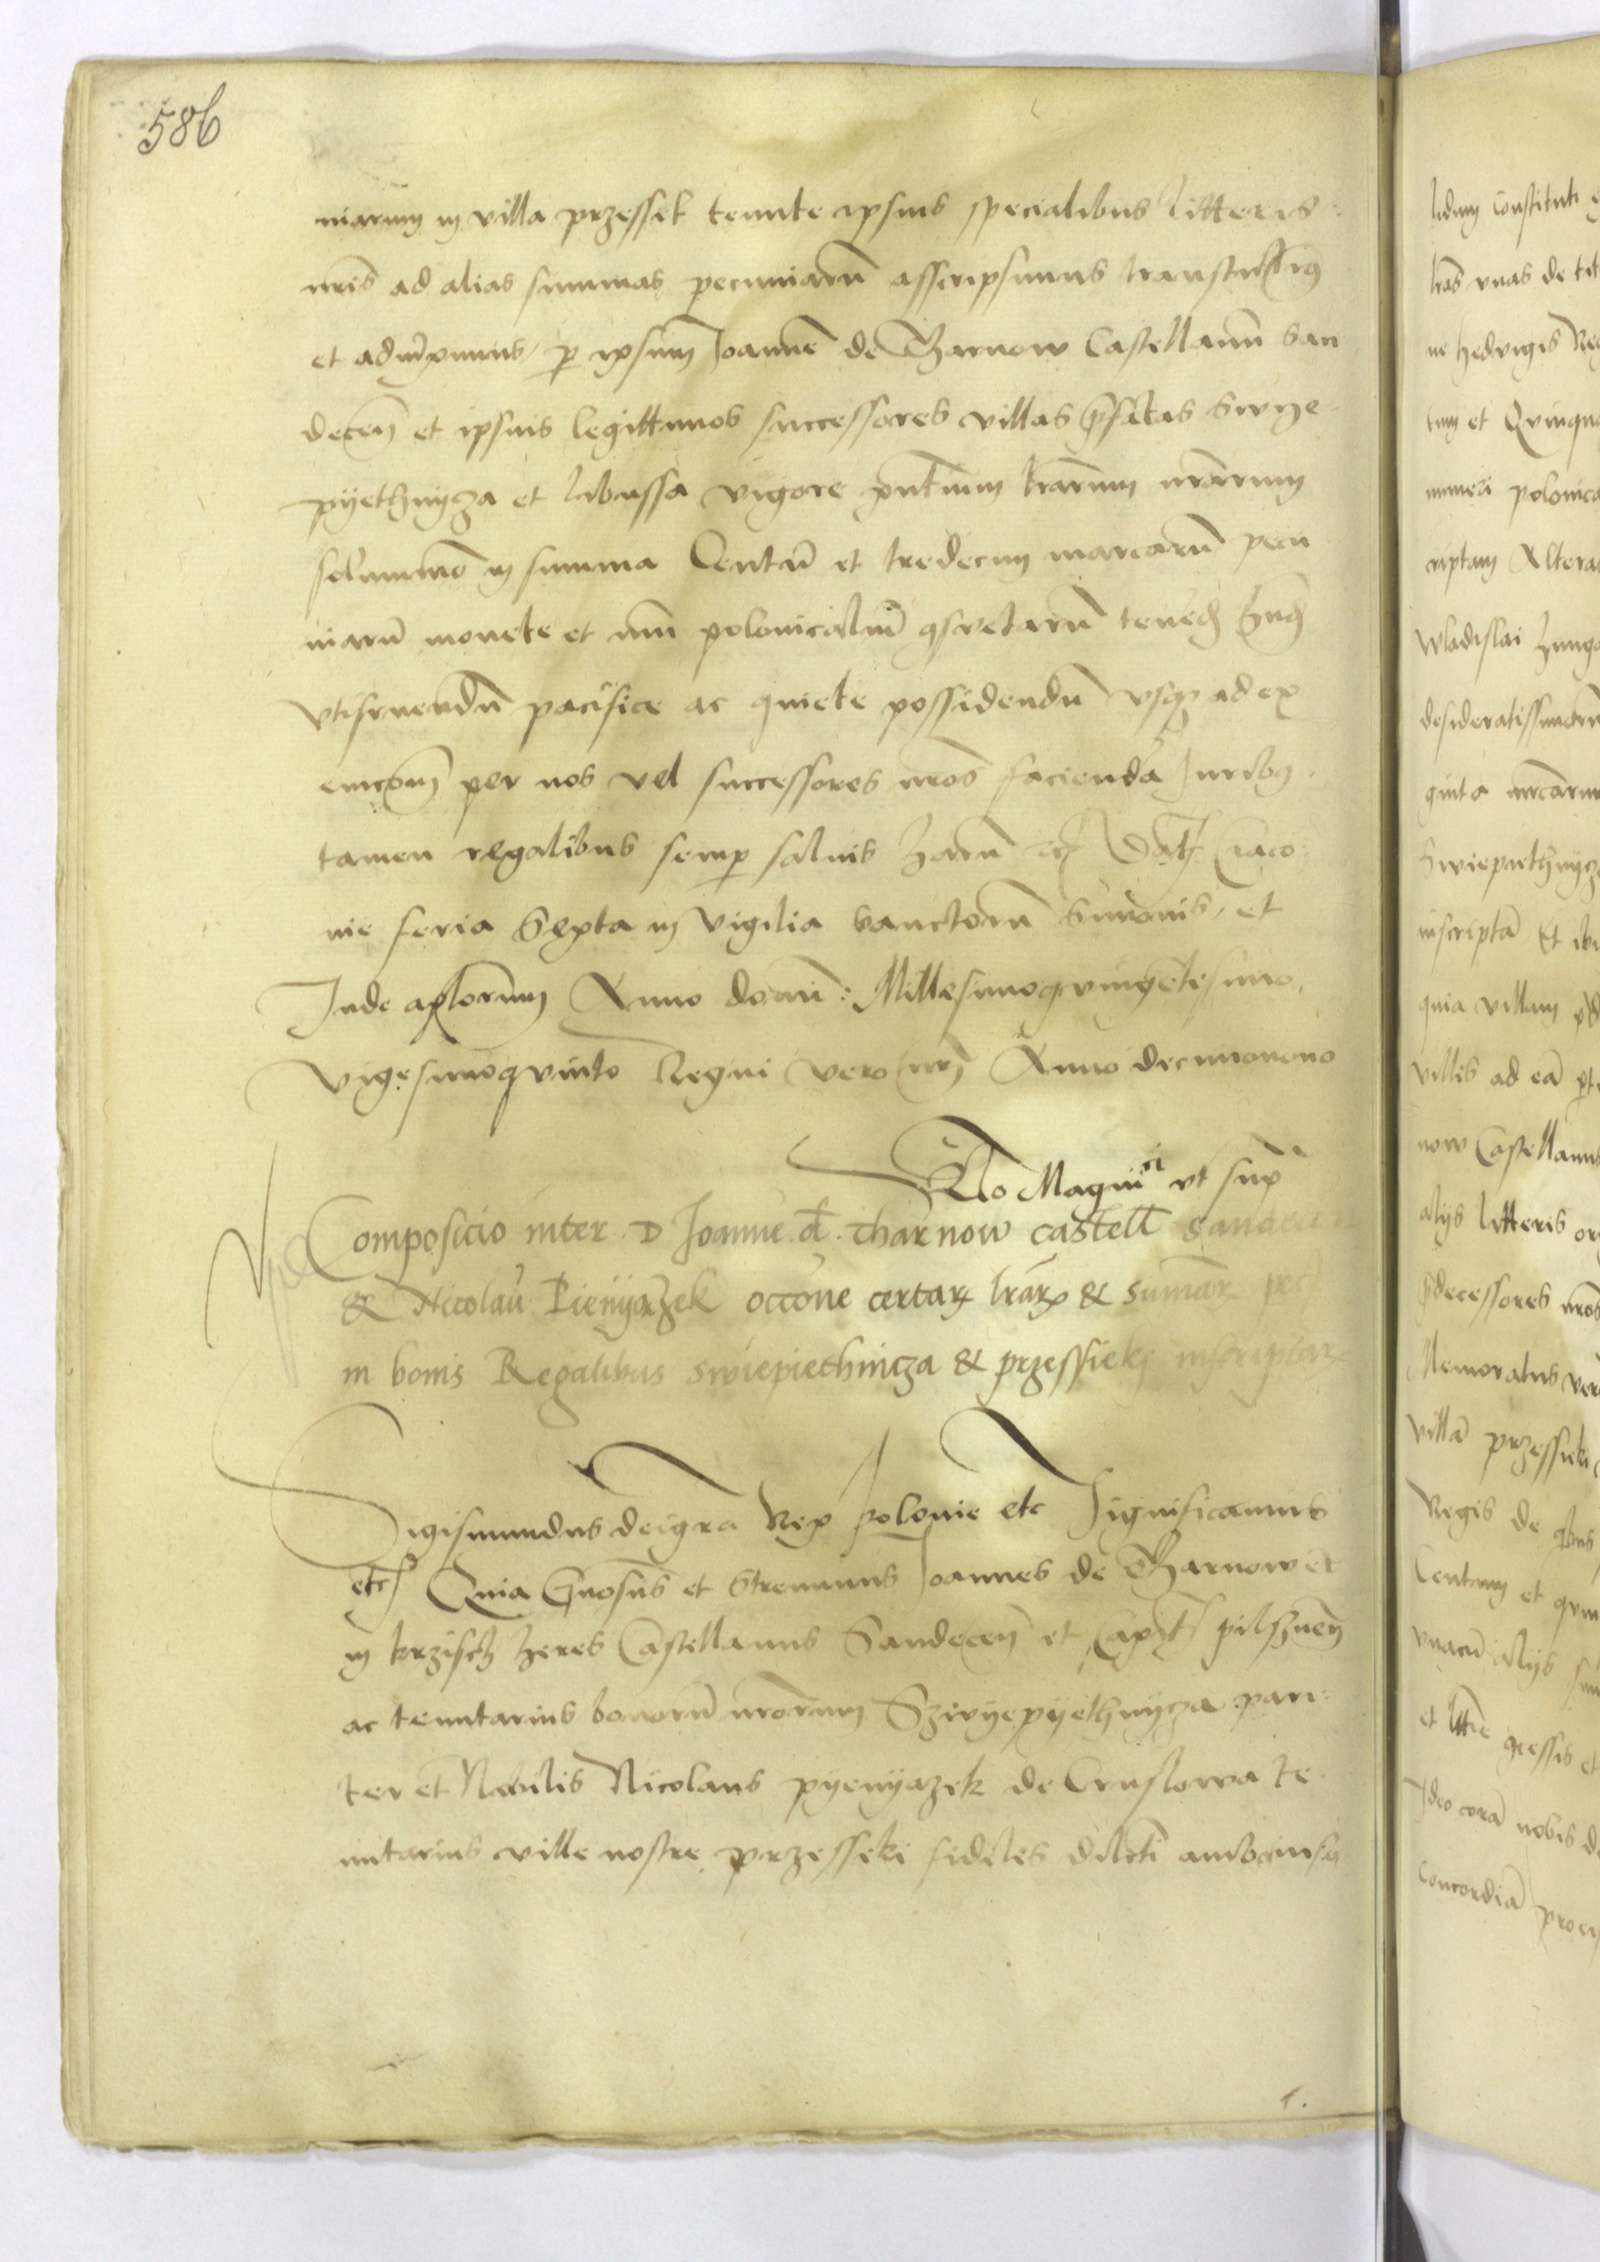 586
niarum in villa przessek tenute ipsius specialibus litteris
nris ad alias summas pecuniarũ asscripsimus transtulimus
et adiuximus, p ipsum Joannẽ de Tharnow Castellanũ San
decen et ipsius legittimos successores villas prefatas Swye
pyethnycza et labussa vigore pntium lrarum nrarum
solummo in summa Centũ et tredecim marcarũ pecu
niarũ monete et nũi polonicaliũ csuetarũ tened hnd
vtifruendũ pacifice ac quiete possidendũ vsq ad ex
empcõem per nos vel successores nros facienda Juribq
tamen regalibus semp saluis harũ etc Dat Craco
nie feria Sexta in vigilia Sanctorũ Simonis, et
Jude aplorum Anno domi: Millesimoqvingẽtesimo,
vigesimoqvinto Regni vero nri Anno decimonono
Ro Magnifici vt sup
Composicio inter D Joanne d Tharnow castell Sandecen
& Nicolaũ Pienyazek occõne certarx lrarx & sumarx pec
in bonis Regalibus swiepiethnicza & przessieky inscriptarx
Sigismundus dei gra Rex polonie etc Significamus
etc Quia Gnosus et Strennuus Joannes de Tharnow et
in krzisch heres Castellanus Sandecen et Capit pilsznen
ac tenutarius bonorũ nrorum Szwyepyethnycza pari
ter et Nobilis Nicolaus pyenyazek de Cruslowa te
nutarius ville nostre przesseki fideles dilcti
lidum constituti
lras vnas de
ne hedvigis Reg
tum et Qvinqua
numeri polonica
criptam Altera
Wladislai hunga
desideratissimorum
ginta mrcarum
Swiepiethnycz
inscriptã Et
quia villam
villis ad eã
now Castellanus
alijs litteris
pdecessores nros
Memoratus
villã przessieki
Regis de qbus
Centum et
vnacũ alijs
et
Ideo corã nobis
Concordiã